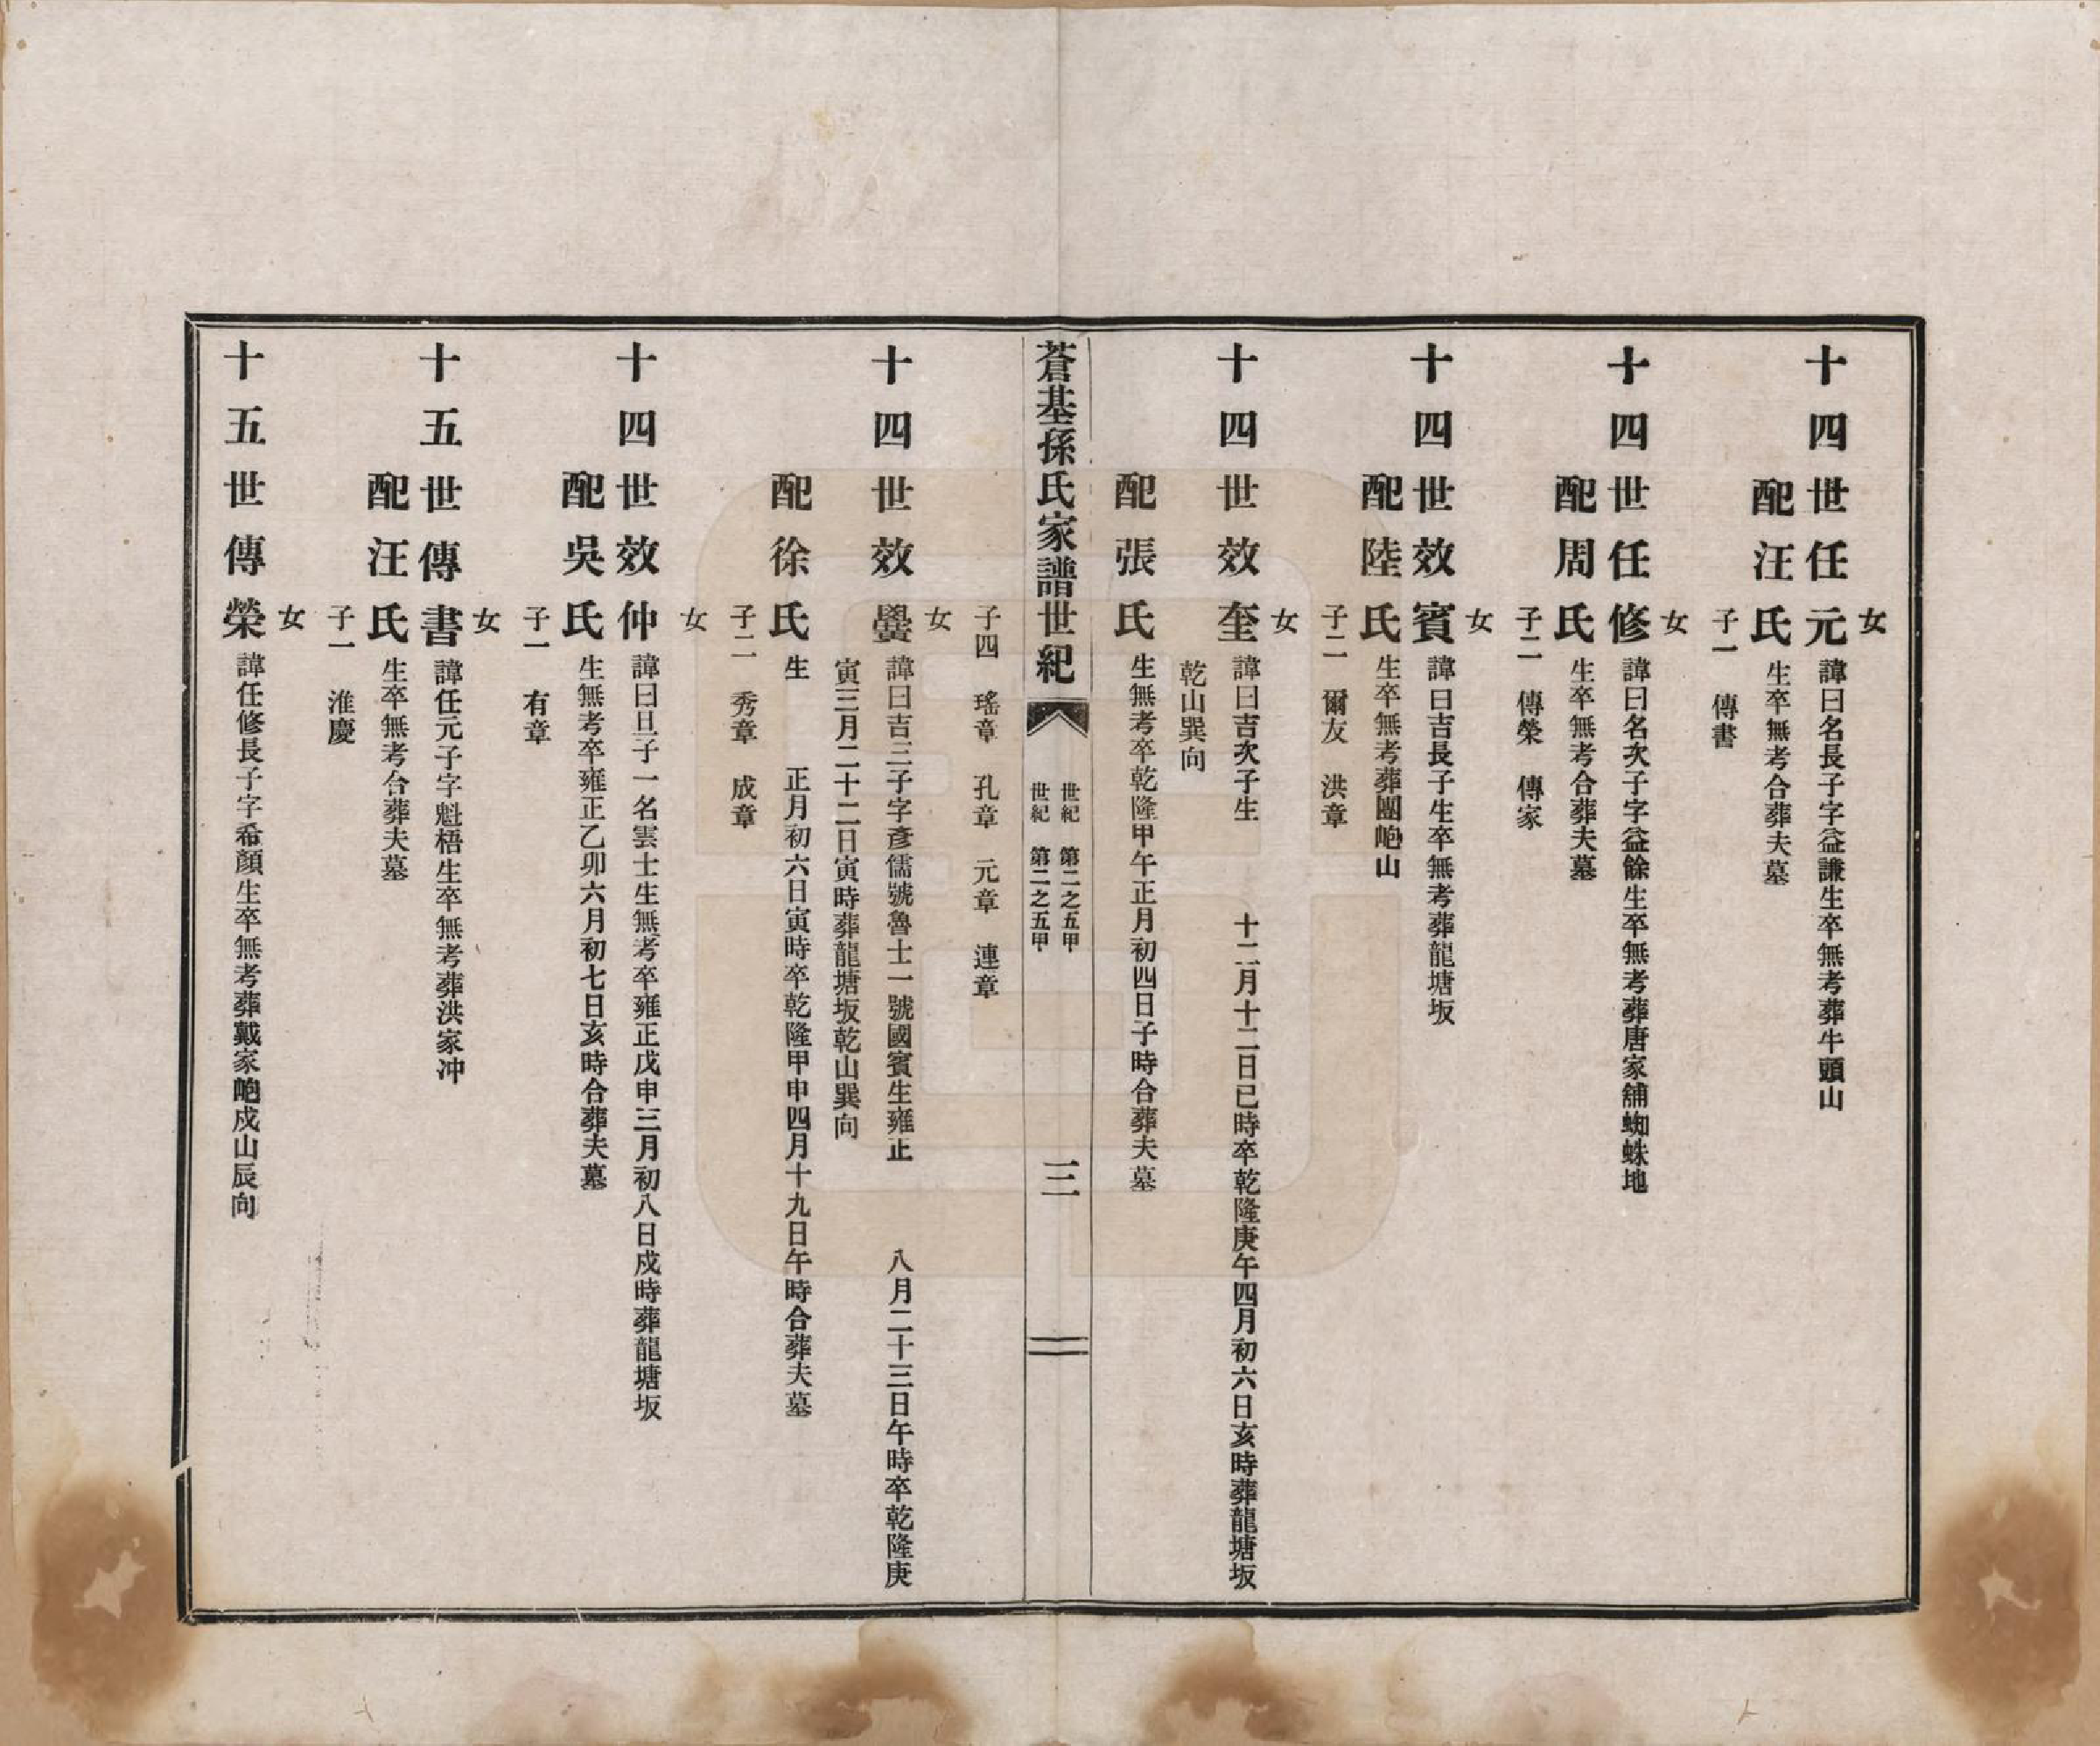 女
十四世任元 諱曰名長子字益謙生卒無考葬牛頭山
配汪氏 生卒無考合葬夫墓
子一 傳書
女
十四世任修 諱曰名次子字益餘生卒無考葬唐家舖蜘蛛地
配周氏 生卒無考合葬夫墓
子二 傳榮 傳家
女
十四世效賓 諱曰吉長子生卒無考葬龍塘坂
配陸氏 生卒無考葬團山
子二 爾友 洪章
女
十四世效奎 諱曰吉次子生 十二月十二日已時卒乾隆庚午四月初六日亥時葬龍塘坂
乾山巽向
配張氏 生無考卒乾隆甲午正月初四日子時合葬夫墓
蒼基孫氏家譜世紀
世紀 第二之五甲
世紀 第二之五甲
三
子四 瑤章 孔章 元章 連章
女
十四世效 諱曰吉三子字彥儒號魯士一號國賓生雍正 八月二十三日午時卒乾隆庚
寅三月二十二日寅時葬龍塘坂乾山巽向
配徐氏 生 正月初六日寅時卒乾隆甲申四月十九日午時合葬夫墓
子二 秀章 成章
女
十四世效仲 諱曰旦子一名雲士生無考卒雍正戊申三月初八日戍時葬龍塘坂
配吳氏 生無考卒雍正乙卯六月初七日亥時合葬夫墓
子一 有章
女
十五世傳書 諱任元子字魁梧生卒無考葬洪家冲
配汪氏 生卒無考合葬夫墓
子一 淮慶
女
十五世傳榮 諱任修長子字希顏生卒無考葬戴家戍山辰向